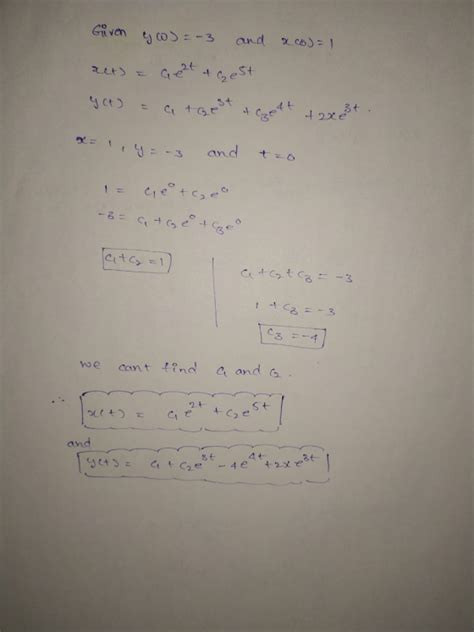 Given y(0) = -3 and x(0) = 1
x(t) = c₁e^2t + c₂e^5t
y(t) = c₁ + c₂e^3t + c₃e^4t + 2xe^3t.
x = 1, y = -3 and t = 0
1 = c₁e^0 + c₂e^0
-3 = c₁ + c₂e^0 + c₃e^0
c₁ + c₂ = 1
c₁ + c₂ + c₃ = -3
1 + c₃ = -3
c₃ = -4
we cant find c₁ and c₂.
∴ x(t) = c₁e^2t + c₂e^5t
and
y(t) = c₁ + c₂e^3t - 4e^4t + 2xe^3t